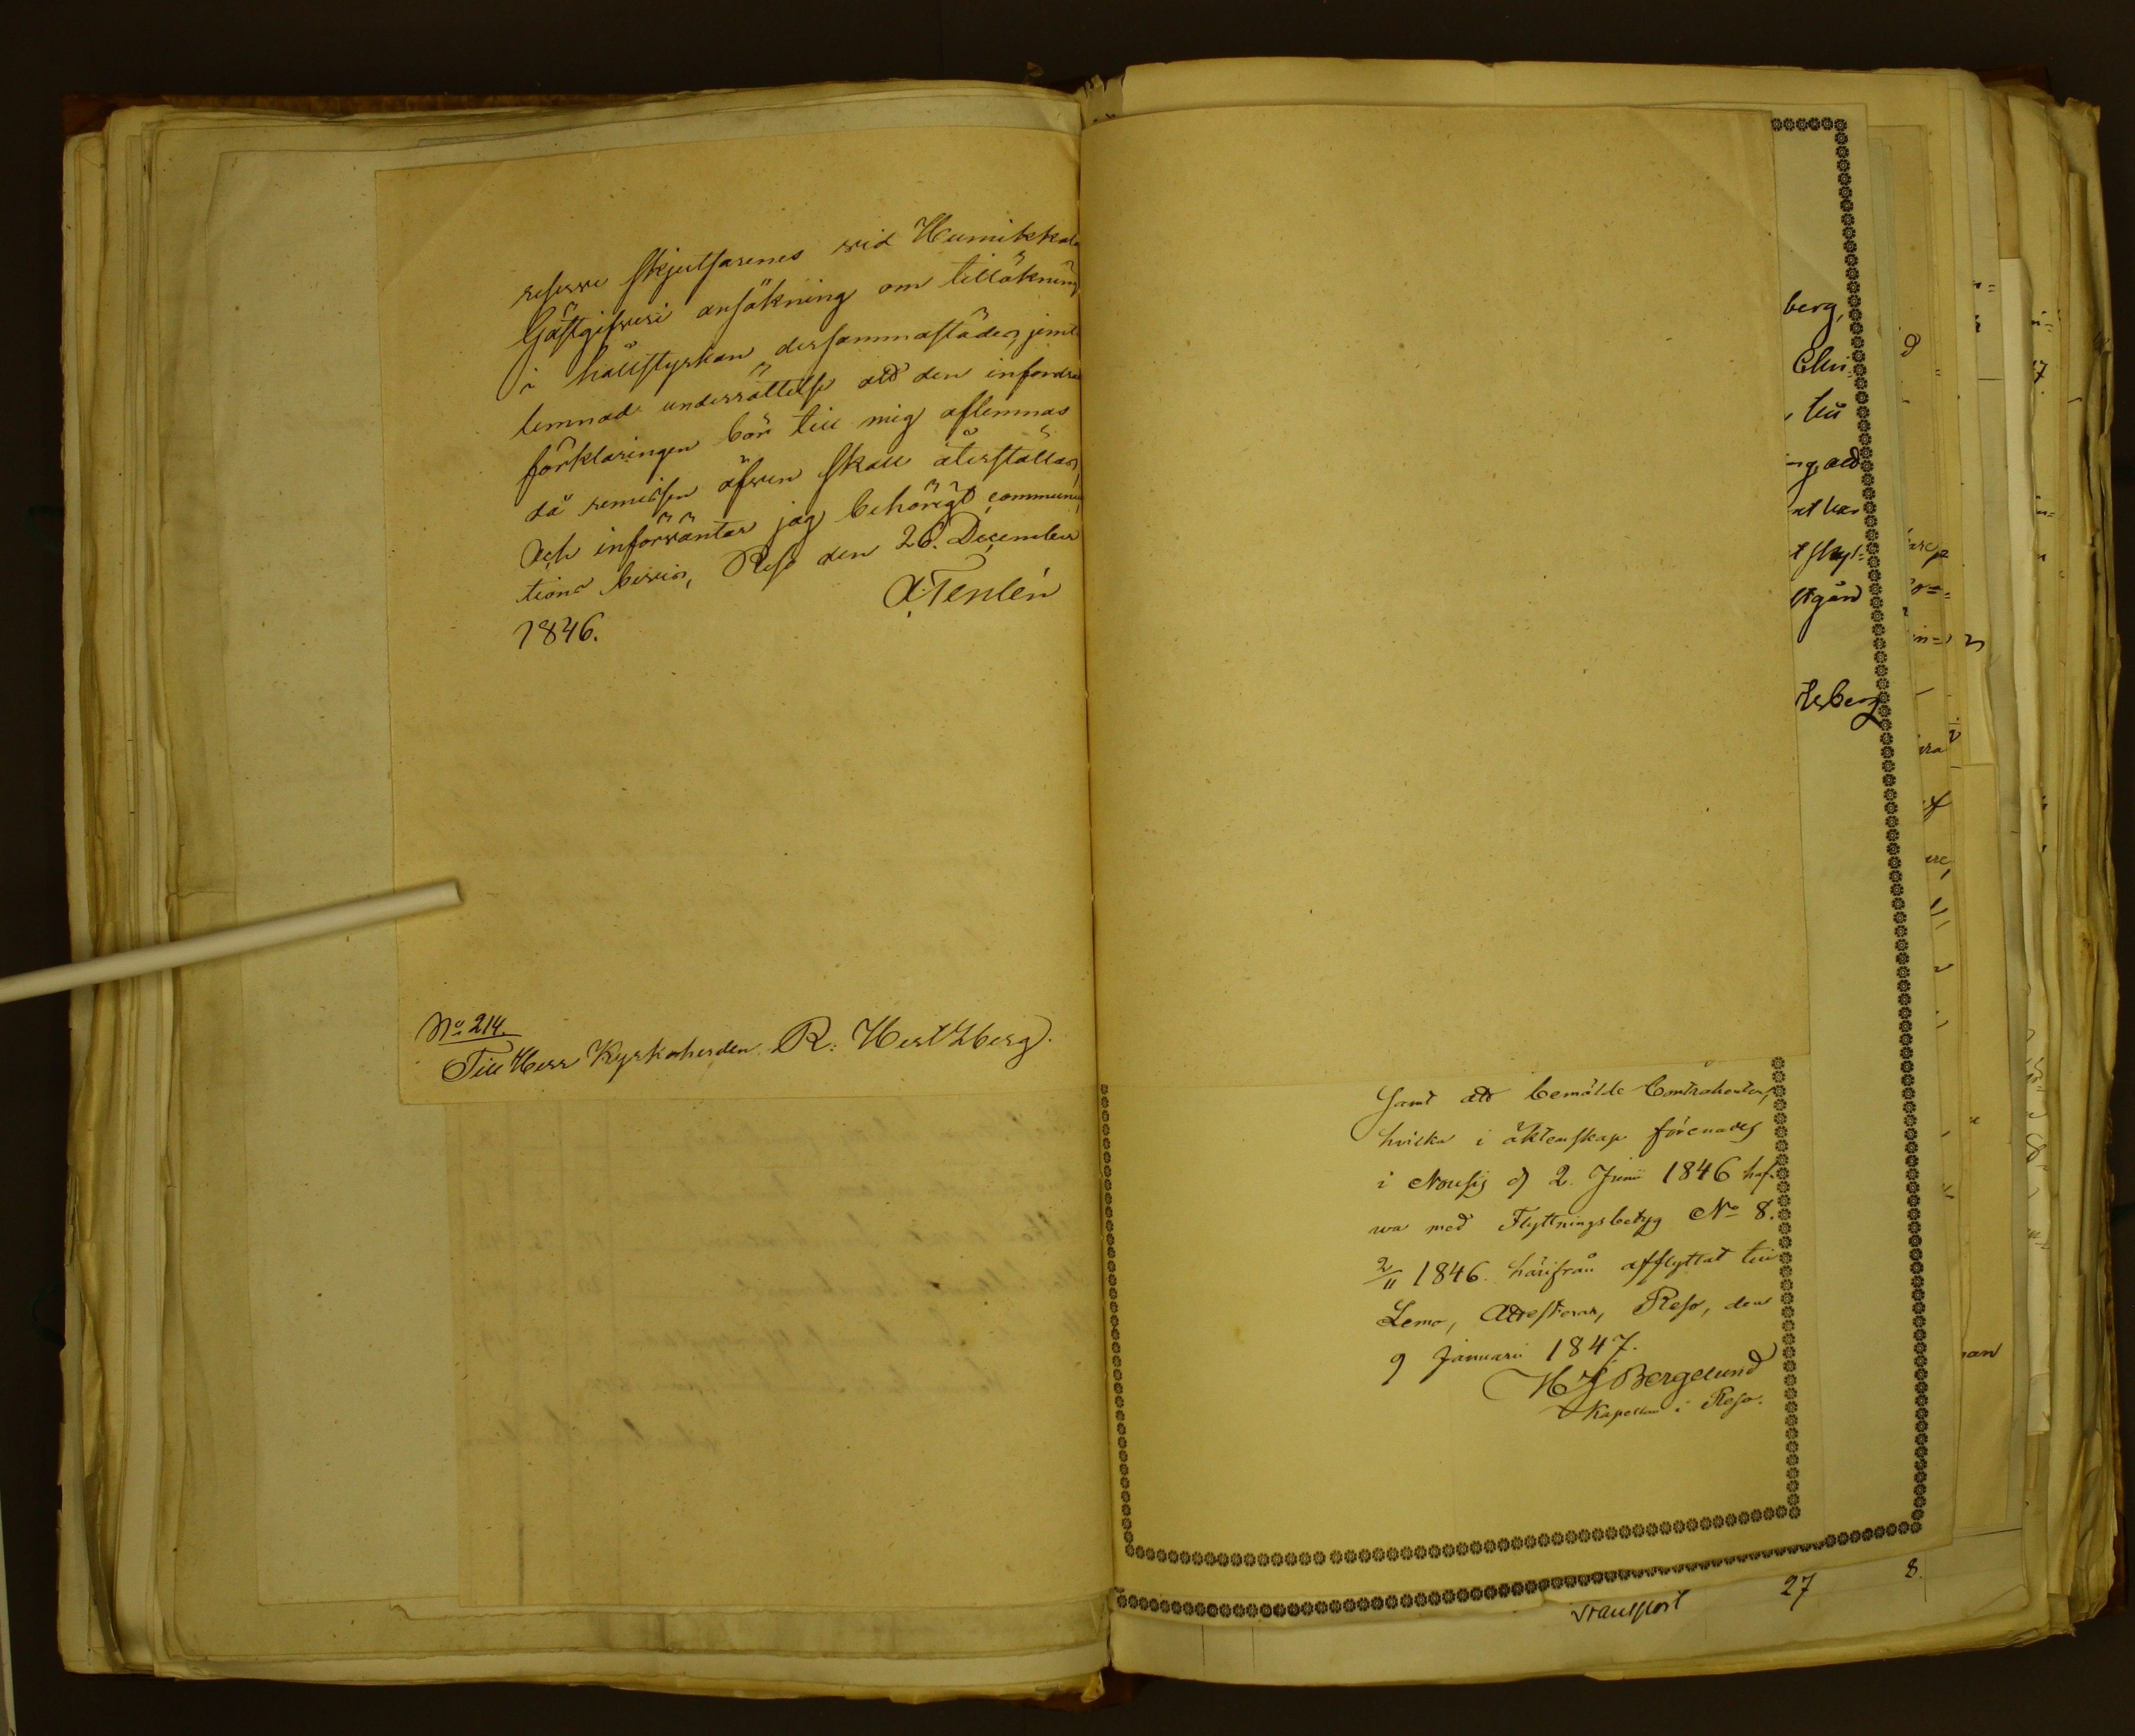 reserve skjutsarenes vid Humikkala
Gästgifveri ansökning om tillökning
i hållstyrkan dersammastädes, jemte
lemnad underrättelse att den infordrade
förklaringen bör till mig aflemnas
då remissen äfven skall återställas,
Och införväntar jag behörigt communica
tions bevis, Reso den 26. December
1846.
A: Tenlén
No 214.
Till Herr Kyrkoherden R: Hertzberg.
berg,
till
att
stgård
tzberg
Samt att bemälde Contrahenter,
hvilka i äktenskap förenades
i Nousis d 2. Junii 1846 haf-
wa med Flyttningsbetyg No 8.
2/11 1846. härifrån afflyttat till
Lemo, Attesteras, Reso, den
9 Januarii 1847.
H J Bergelund
Kapellan i Reso.
Transport 27 8.